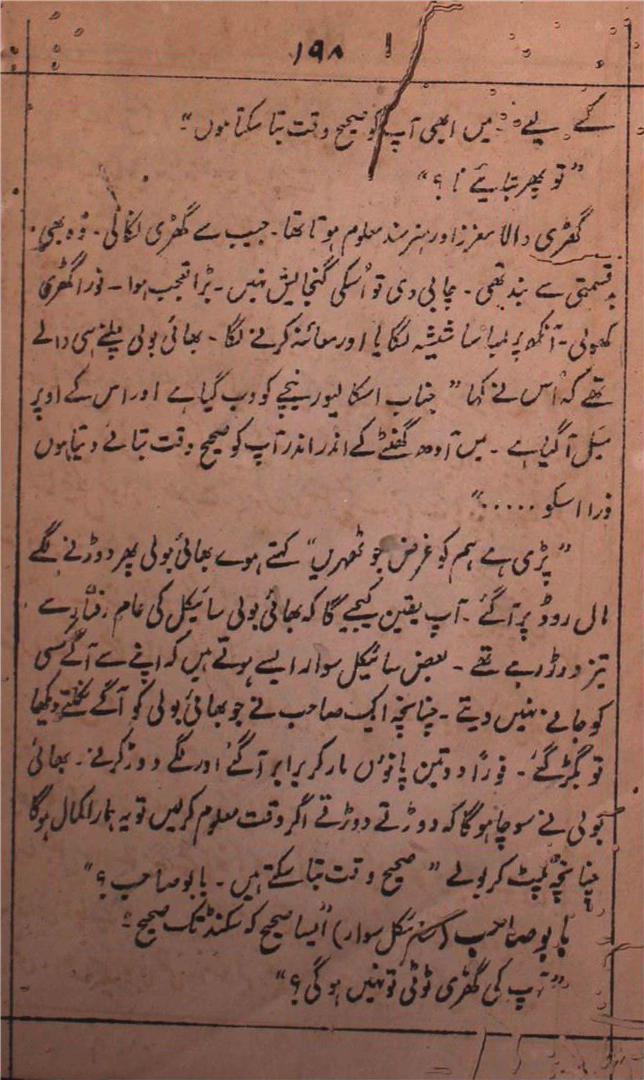 ۱۹۸
کے لیے۔ میں ابھی آپ کو صحیح وقت بتا سکتا ہوں"
"تو پھر بتایئے نا؟"
گھڑی والا معزز اور ہنر مند معلوم ہوتا تھا۔ جیب سے گھڑی نکالی۔ وہ بھی
بدقسمتی سے بند تھی۔ چابی دی تو اُسکی گنجایش نہیں۔ بڑا تعجب ہوا۔ فوراً گھڑی
کھولی۔ آنکھ پر لمبا سا شیشہ لگایا اور معائنہ کرنے لگا۔ بھائی بولی چلنے ہی والے
تھے کہ اُس نے کہا "جناب اسکا لیور نیچے کو دب گیا ہے اور اس کے اوپر
میل آ گیا ہے۔ میں آدھ گھنٹے کے اندر اندر آپ کو صحیح وقت بتائے دیتا ہوں
ذرا اسکو ....."
"پڑی ہے ہم کو غرض جو ٹھہریں" کہتے ہوے بھائی بولی پھر دوڑنے لگے
مال روڈ پر آ گئے۔ آپ یقین کیجیے گا کہ بھائی بولی سائیکل کی عام رفتار سے
تیز دوڑ رہے تھے۔ بعض سائیکل سوار ایسے ہوتے ہیں کہ اپنے سے آگے کسی
کو جانے نہیں دیتے۔ چنانچہ ایک صاحب نے جو بھائی بولی کو آگے نکلتے دیکھا
تو بگڑ گئے۔ فوراً دو تین پانوں مار کر برابر آ گئے اور لگے دوڑ کرنے۔ بھائی
بولی نے سوچا ہو گا کہ دوڑتے دوڑتے اگر وقت معلوم کر لیں تو یہ ہمارا کمال ہو گا
چنانچہ لپٹ کر بولے "صحیح وقت بتا سکتے ہیں۔ بابو صاحب؟"
بابو صاحب (سائیکل سوار) "ایسا صحیح کہ سکنڈ تک صحیح"
"آپ کی گھڑی ٹوٹی تو نہیں ہو گی؟"